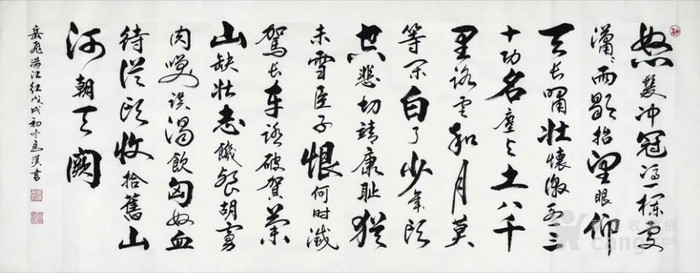 怒髮冲冠凭栏處
瀟瀟雨歇抬望眼仰
天長嘯壯懷激烈三
十功名塵与土八千
里路雲和月莫
等闲白了少年頭
空悲切靖康耻猶
未雪臣子恨何时滅
駕長車踏破贺蘭
山缺壮志饑餐胡虜
肉笑談渴飲匈奴血
待從頭收拾舊山
河朝天闕
岳飛满江红戊戌初冬書